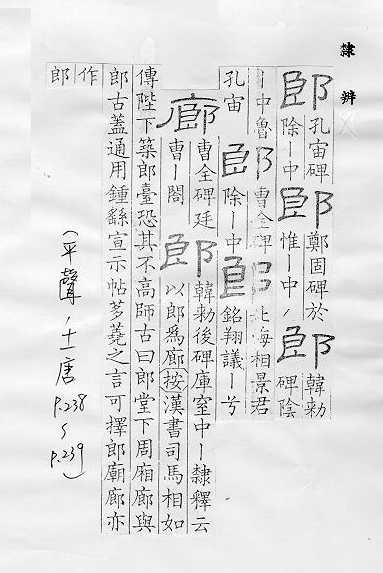 隸辨
郎孔宙碑除丨中郎鄭固碑於惟丨中郎韓勑碑陰
丨中魯孔宙郎曹全碑除丨中郎北海相景君銘翔議丨兮
廊曹全碑廷曹丨閤郎韓勑後碑庫室中丨隸釋云以郎爲廊按漢書司馬相如
傳陛下築郎臺恐其不高師古曰郎堂下周廂廊與
郎古蓋通用鍾繇宣示帖芻蕘之言可擇郎廟廊亦
作
郎
(平聲,十一唐 P.238~P.239)